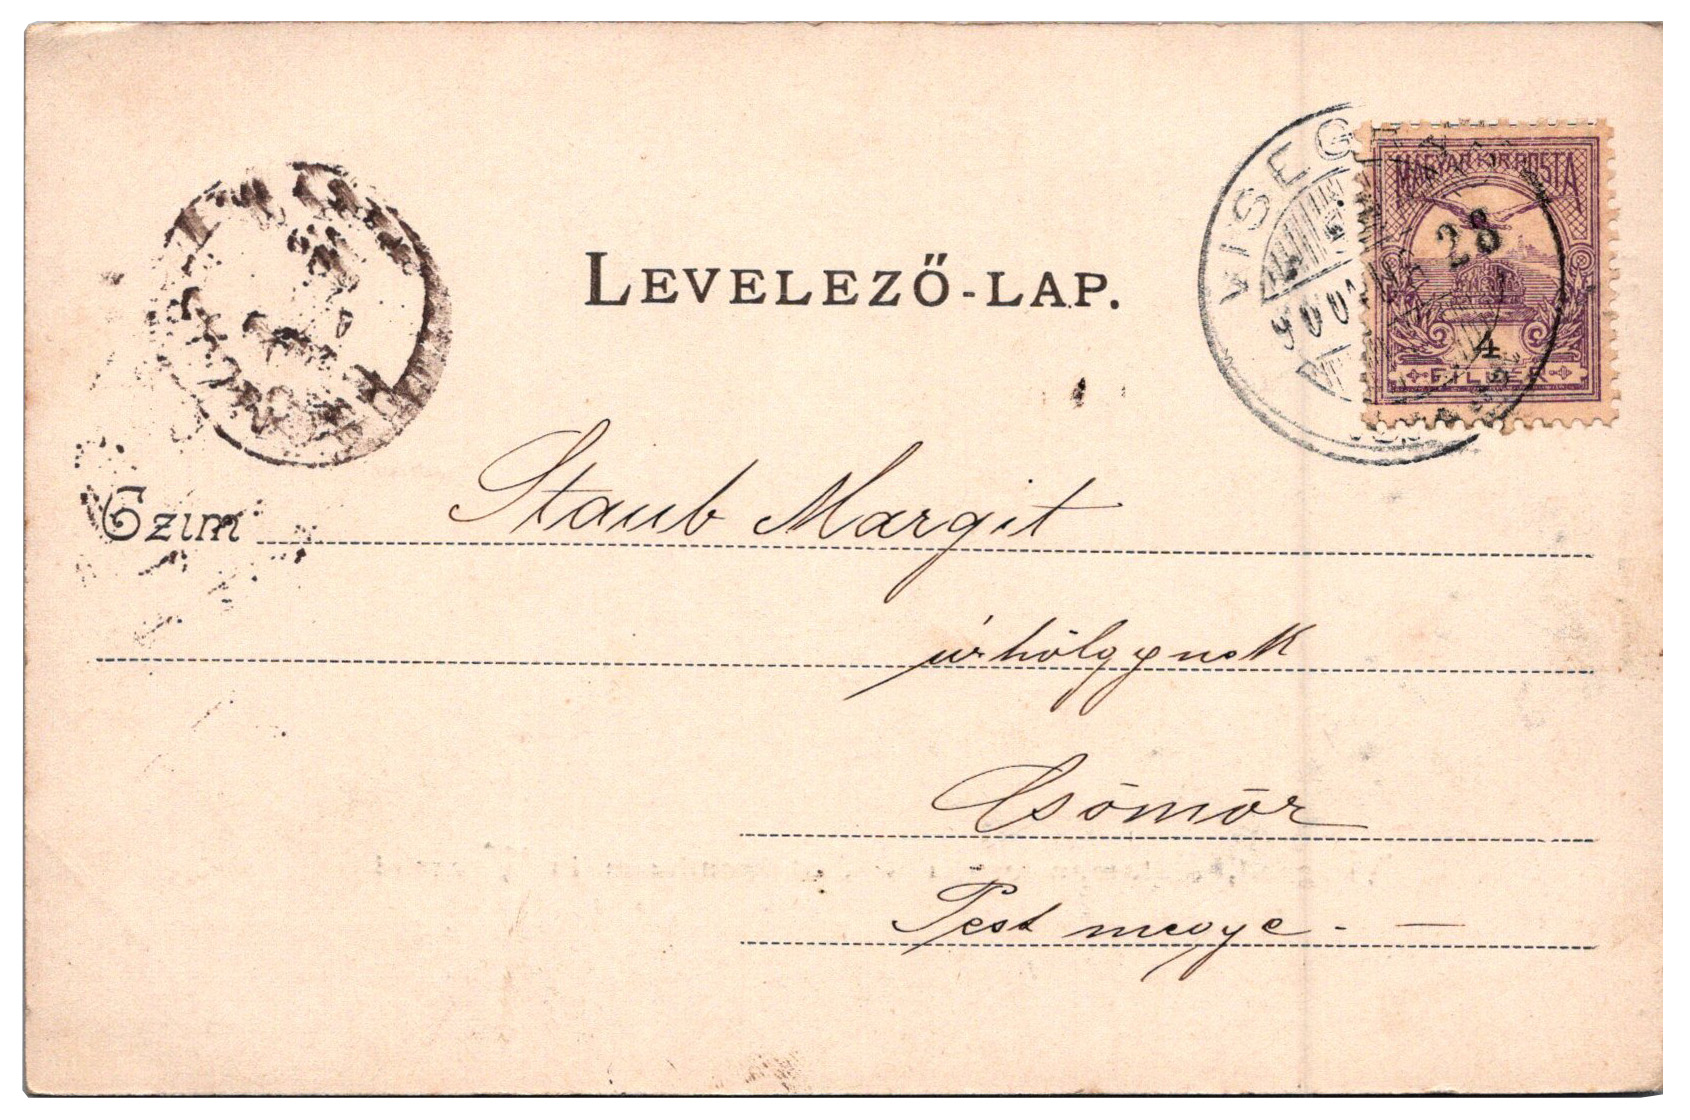 LEVELEZŐ-LAP.
VISEG
MAGYAR KIR. POSTA
28
900
4
FILLÉR
Czim
Staub Margit
úrhölgynek
Csömör
Pest megye. —